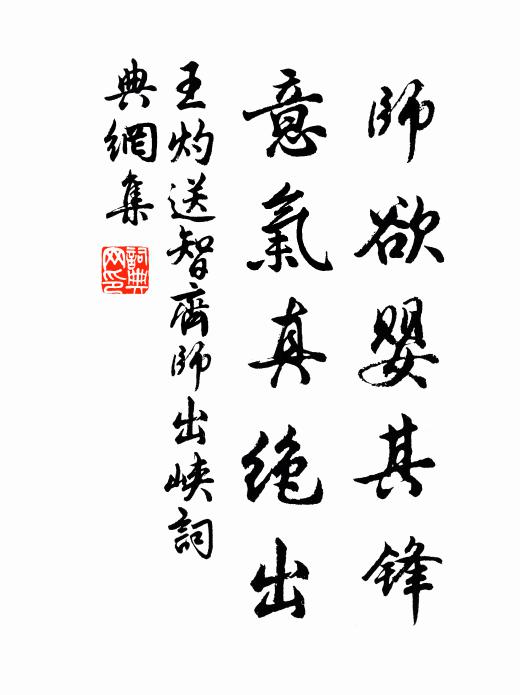 師欲嬰其鋒
意氣真絶出
王灼送智齊師出峽詞
典網集
詞典
网印